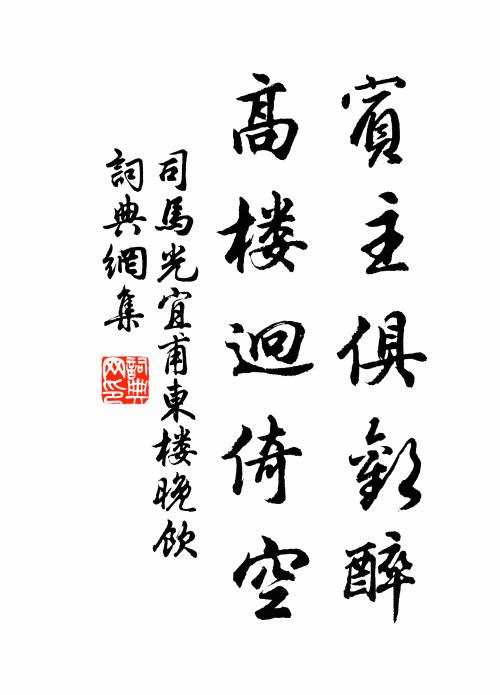 賓主俱歡醉
高楼迥倚空
司馬光宜甫東楼晚飲
詞典網集
詞典
网印